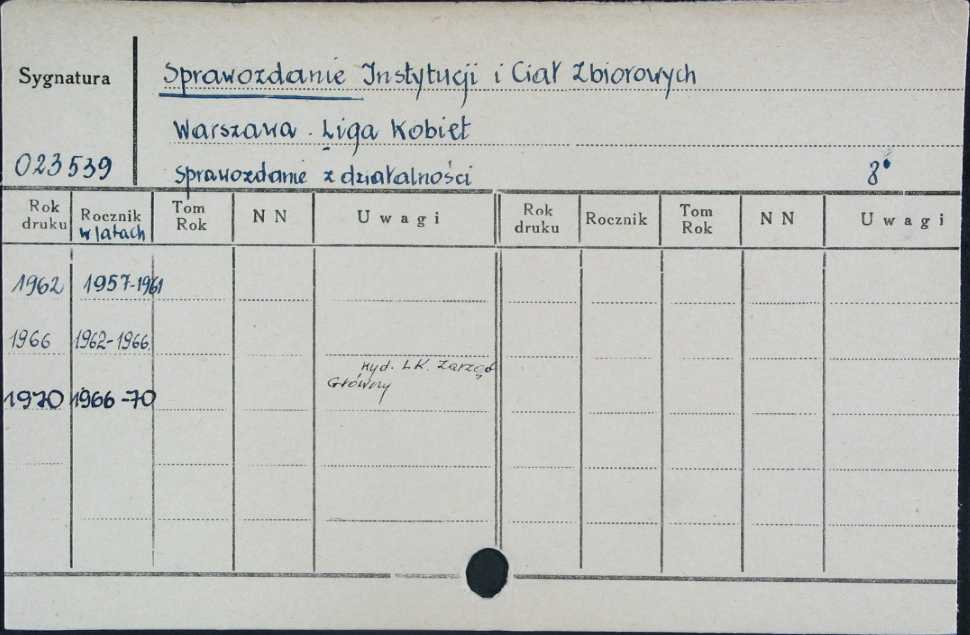 Sygnatura
Sprawozdanie Instytucji i Ciał Zbiorowych
Warszawa. Liga Kobiet
023539
Sprawozdanie z działalności 8°
Rok druku Rocznik w latach Tom Rok NN Uwagi Rok druku Rocznik Tom Rok NN Uwagi
1962 1957-1961
1966 1962-1966
wyd. LK. Zarząd
Główny
1970 1966-70